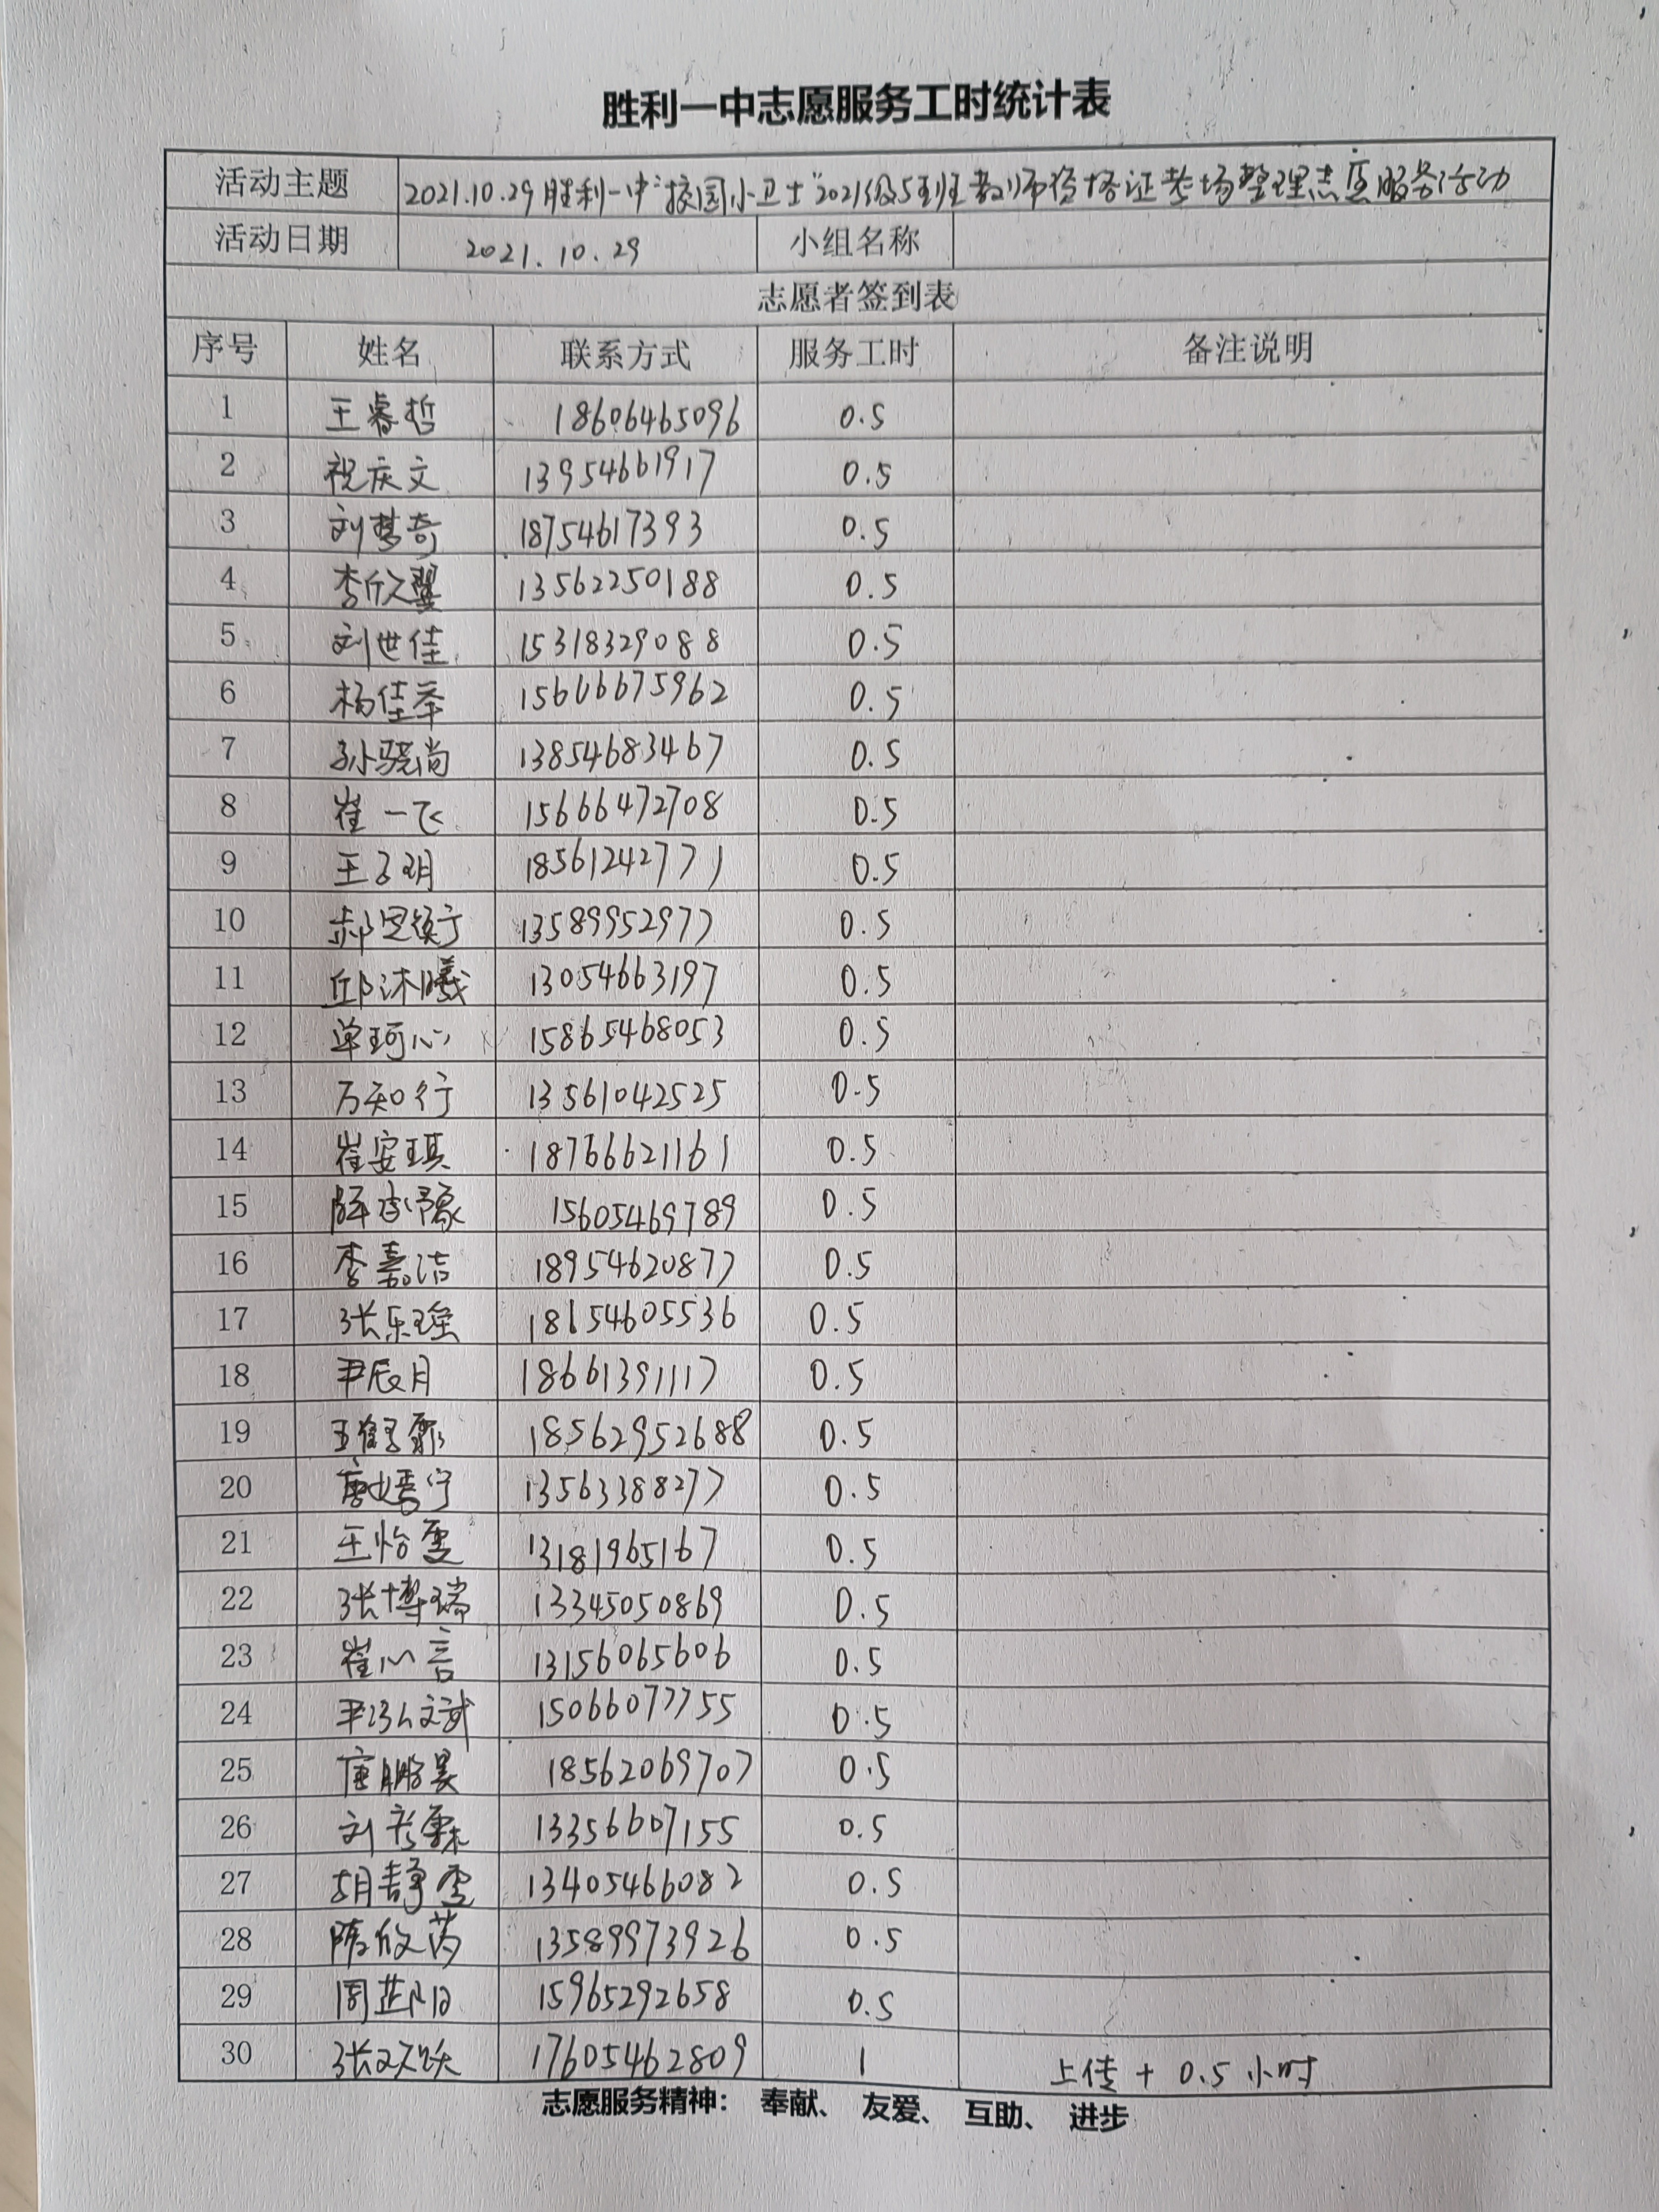 胜利一中志愿服务工时统计表
活动主题 2021.10.29胜利一中"校园小卫士"2021级5班教师资格证考场整理志愿服务活动
活动日期 2021.10.29 小组名称
志愿者签到表
序号 姓名 联系方式 服务工时 备注说明
1 王睿哲 18606465096 0.5
2 祝庆文 13954661917 0.5
3 刘梦奇 18754617393 0.5
4 李欣翼 13562250188 0.5
5 刘世佳 15318329088 0.5
6 杨佳举 15666675962 0.5
7 孙骁尚 13854683467 0.5
8 崔一飞 15666472708 0.5
9 王子玥 18561242771 0.5
10 郝思 13589952977 0.5
11 邱沐曦 13054663197 0.5
12 单珂心 15865468053 0.5
13 万知行 13561042525 0.5
14 崔安琪 18766621161 0.5
15 15605469789 0.5
16 李嘉洁 18954620877 0.5
17 张乐瑶 18654605536 0.5
18 尹辰月 18661391117 0.5
19 王 18562952688 0.5
20 唐嫣宁 13563388277 0.5
21 王怡雯 13181965167 0.5
22 张博瑞 13345050869 0.5
23 崔心言 13156065606 0.5
24 尹泓文斌 15066077755 0.5
25 唐鹏昊 18562069707 0.5
26 刘彦霖 13356607155 0.5
27 胡静雯 13405466082 0.5
28 隋欣芮 13589973926 0.5
29 周芷阳 15965292658 0.5
30 张 17605462809 1 上传+0.5小时
志愿服务精神： 奉献、 友爱、 互助、 进步